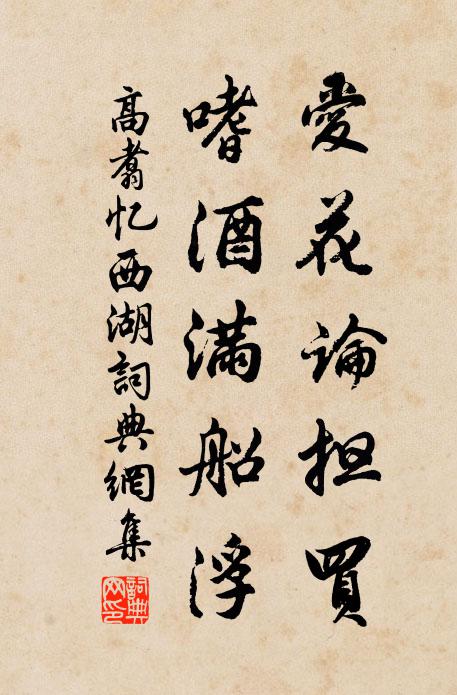 愛花論担買
嗜酒滿船浮
高翥忆西湖詞典網集
詞典网印